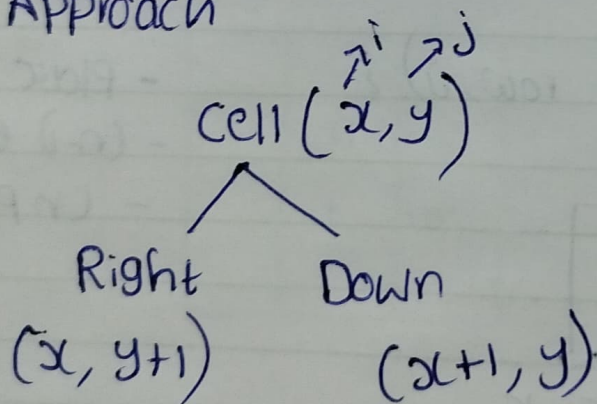 Approach
i j
Cell (x, y)
Right Down
(x, y+1) (x+1, y)